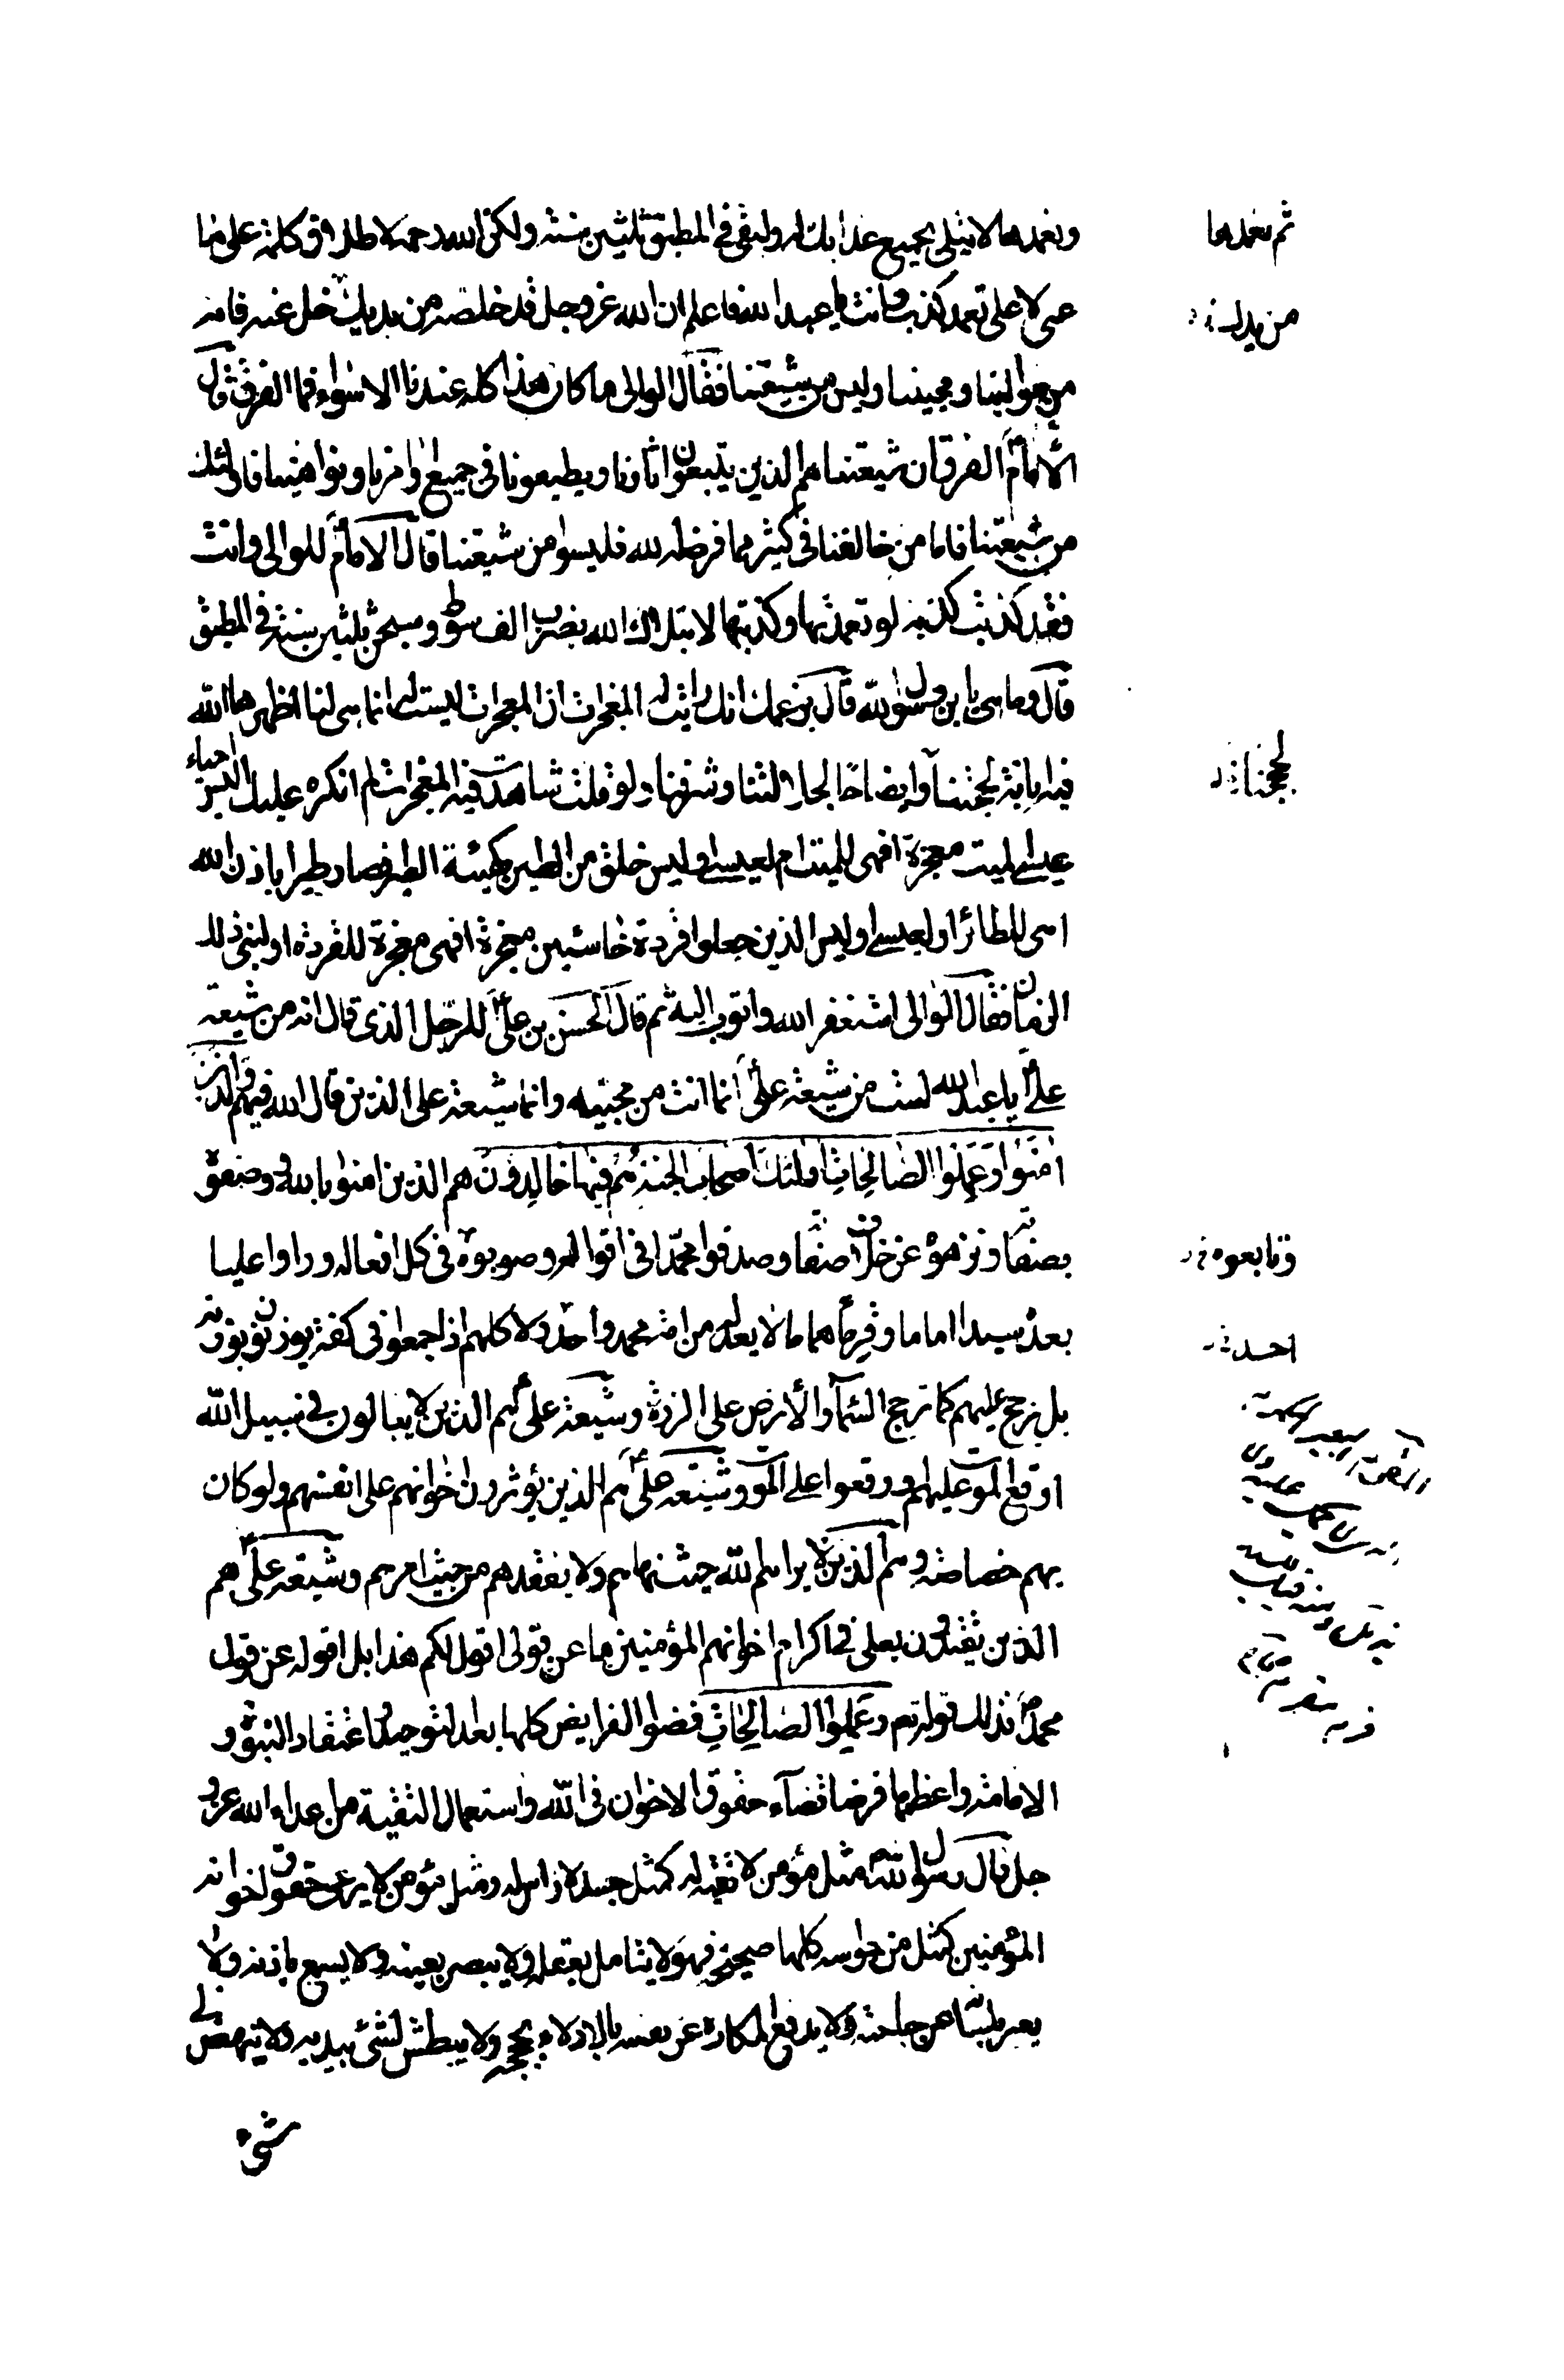 وتعمدها لابتلى بجميع عذابك له ولبقى فى المطبق ثلثين سنة ولكن الله رحمه لاطلاق كلمة على ما
ثم تعمدها
عنى لا على تعمد كذب وانت يا عبد الله فاعلم ان الله عز وجل قد خلصه من يديك خل عنه فانه
من يدك
من موالينا ومحبينا وليس من شيعتنا فقال الوالى ما كان هذا كله عندنا الا سواء فما الفرق قال
الامام الفرق ان شيعتنا هم الذين يتبعون اثارنا ويطيعونا فى جميع اوامرنا ونواهينا فاولئك
من شيعتنا فاما من خالفنا فى كثير مما فرضه الله فليسوا من شيعتنا قال الامام للوالى وانت
فقد كذبت كذبة لو تعمدتها وكذبتها لابتلاك الله بضرب الف سوط وسجن ثلثين سنة فى المطبق
قال وما هى يا بن رسول الله قال بزعمك انك رايت له المعجزات ان المعجزات ليست له انما هى لنا اظهرها الله
فيه ابانة لحجتنا وايضاحا لجلالتنا وشرفنا ولو قلت شاهدت فيه المعجزات لم انكره عليك اليس احياء
لحججنا
عيسى لميت معجزة افهى للميت ام لعيسى اوليس خلق من الطين كهيئة الطير فصار طيرا باذن الله
اهى للطائر او لعيسى اوليس الذين جعلوا قردة خاسئين معجزة افهى معجزة للقردة او لنبى ذلك
الزمان فقال الوالى استغفر الله واتوب اليه ثم قال الحسن بن على للرجل الذى قال انه من شيعة
على يا عبد الله لست من شيعة على انما انت من محبيه وانما شيعة على الذين قال الله فيهم والذين
امنوا وعملوا الصالحات اولئك اصحاب الجنة هم فيها خالدون هم الذين امنوا بالله ووصفوه
بصفاته ونزهوه عن خلاف صفاته وصدقوا محمدا فى اقواله وصوبوه فى كل افعاله وراوا عليا
وتابعوه
بعده سيدا اماما وقرما هماما لا يعدله من امة محمد واحد ولا كلهم اذا جمعوا فى كفة يوزنون بوزنه
احد
بل يرجح عليهم كما ترجح السماء والارض على الذرة وشيعة على هم الذين لا يبالون فى سبيل الله
اوقع الموت عليهم او وقعوا على الموت وشيعة على هم الذين يؤثرون اخوانهم على انفسهم ولو كان
بهم خصاصة وهم الذين لا يراهم الله حيث نهاهم ولا يفقدهم من حيث امرهم وشيعة على هم
الذين يقتدون بعلى فى اكرام اخوانهم المؤمنين ما عن قولى اقول لكم هذا بل اقوله عن قول
محمد فذلك قوله تع وعملوا الصالحات قضوا الفرايض كلها بعد التوحيد واعتقاد النبوة و
الامامة واعظمها فرضا قضاء حقوق الاخوان فى الله واستعمال التقية من اعداء الله عز و
جل قال رسول الله مثل مؤمن لا تقية له كمثل جسد لا راس له ومثل مؤمن لا يرعى حقوق اخوانه
المؤمنين كمثل من حواسه كلها صحيحة فهو لا يتامل بعقله ولا يبصر بعينه ولا يسمع باذنه ولا
يعبر بلسانه عن حاجته ولا يدفع المكاره عن نفسه بالادلاء بحججه ولا يبطش لشئ بيديه ولا ينهض الى
شئ